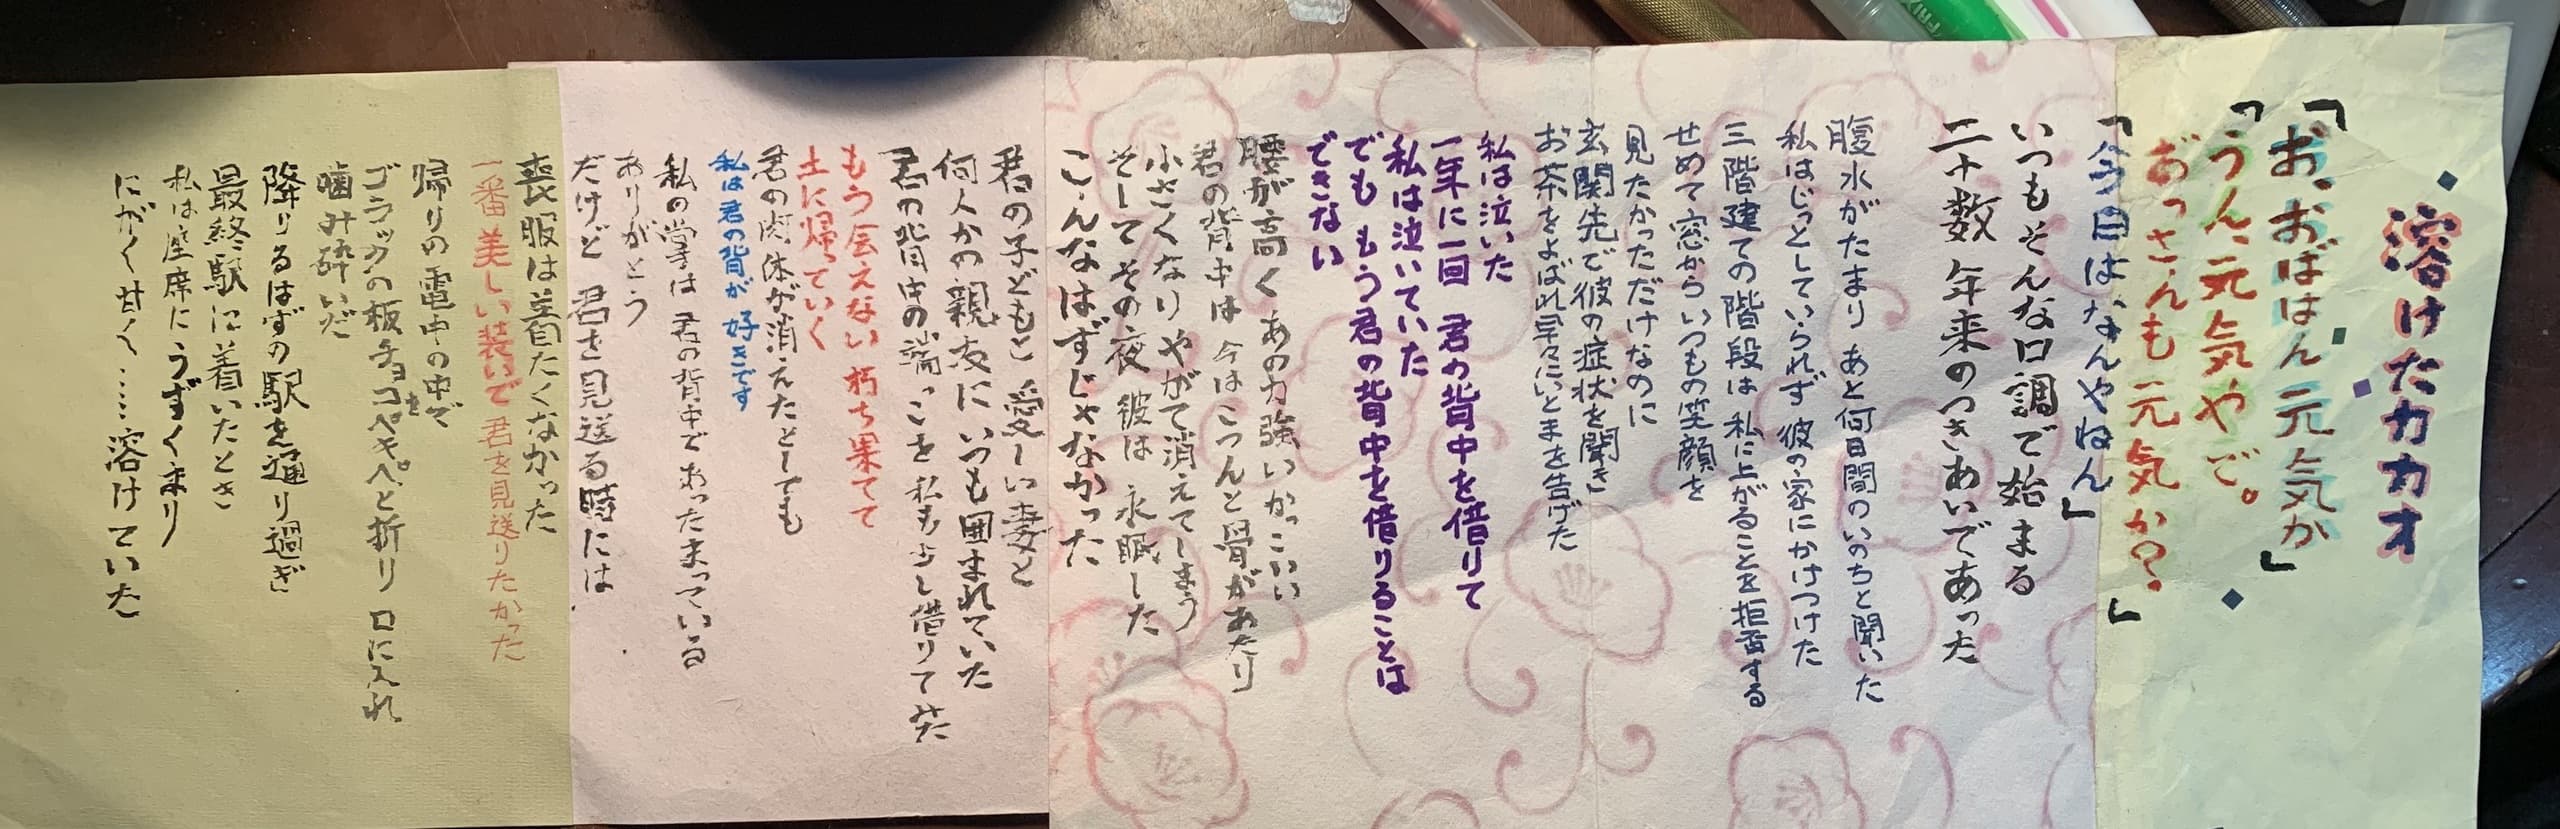 溶けたカカオ
「お、おばはん元気か」
「うん、元気やで。
おっさんも元気か？」
「今日はなんやねん」
いつもそんな口調で始まる
二十数年来のつきあいであった
腹水がたまり あと何日間のいのちと聞いた
私はじっとしていられず 彼の家にかけつけた
三階建ての階段は 私に上がることを拒否する
せめて窓からいつもの笑顔を
見たかっただけなのに
玄関先で彼の症状を聞き
お茶をよばれ早々にいとまを告げた
私は泣いた
一年に一回 君の背中を借りて
私は泣いていた
でも もう君の背中を借りることは
できない
腰が高く あの力強いかっこいい
君の背中は 今はこつんと骨があたり
小さくなり やがて消えてしまう
そしてその夜 彼は 永眠した
こんなはずじゃなかった
君の子どもと 愛しい妻と
何人かの親友に いつも囲まれていた
君の背中の端っこを 私も少し借りてみた
もう会えない 朽ち果てて
土に帰っていく
君の肉体が消えたとしても
私は君の背が 好きです
私の掌は 君の背中であったまっている
ありがとう
だけど 君を見送る時には
喪服は着たくなかった
一番美しい装いで 君を見送りたかった
帰りの電車の中で
ゴラックの板チョコをペキペキと折り 口に入れ
噛み砕いだ
降りるはずの駅を通り過ぎ
最終駅に着いたとき
私は座席にうずくまり
にがく甘く……溶けていた